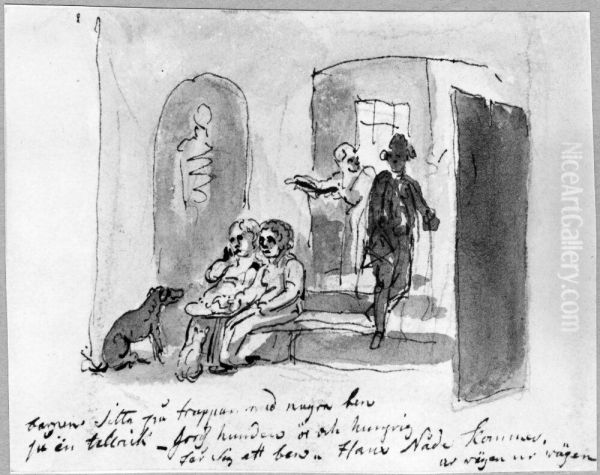 barnen sitta på trappan med några ben
på en tallrick - Jorg hunden är och hungrig
får sig ett ben Hans Nåde kommer.
ur wägen ur wägen
NiceArtGallery.com